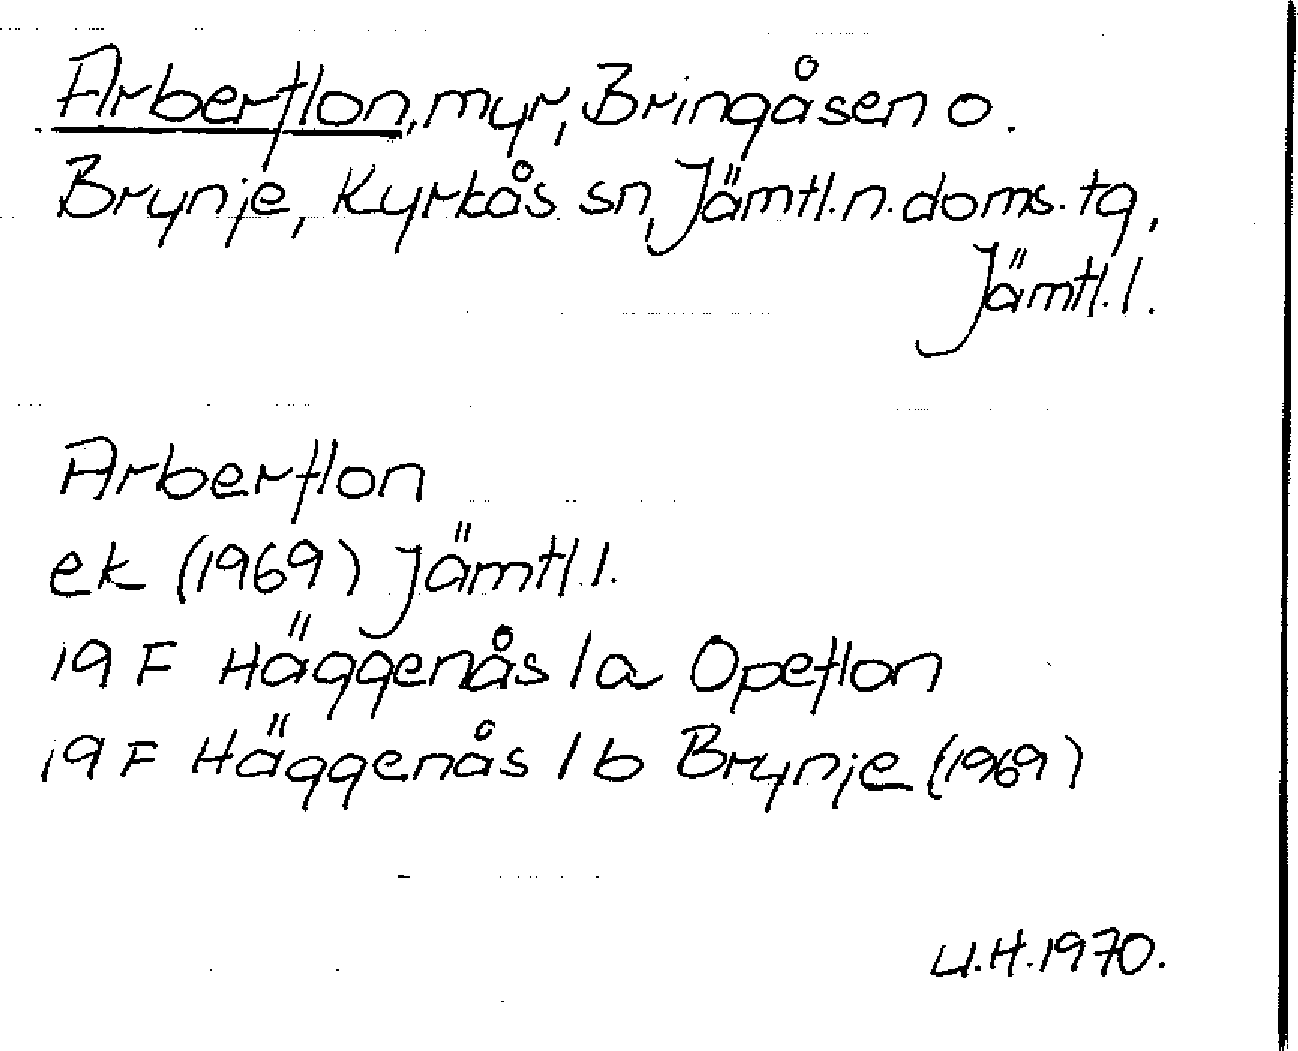 Arberflon, myr, Bringåsen o.
Brynje, Kyrkås sn, Jämtl. n. doms. tg,
Jämtl. l.
Arberflon
ek (1969) Jämtl. l.
19 F Häggenås 1 a Opeflon
19 F Häggenås 1 b Brynje (1969)
U.H. 1970.